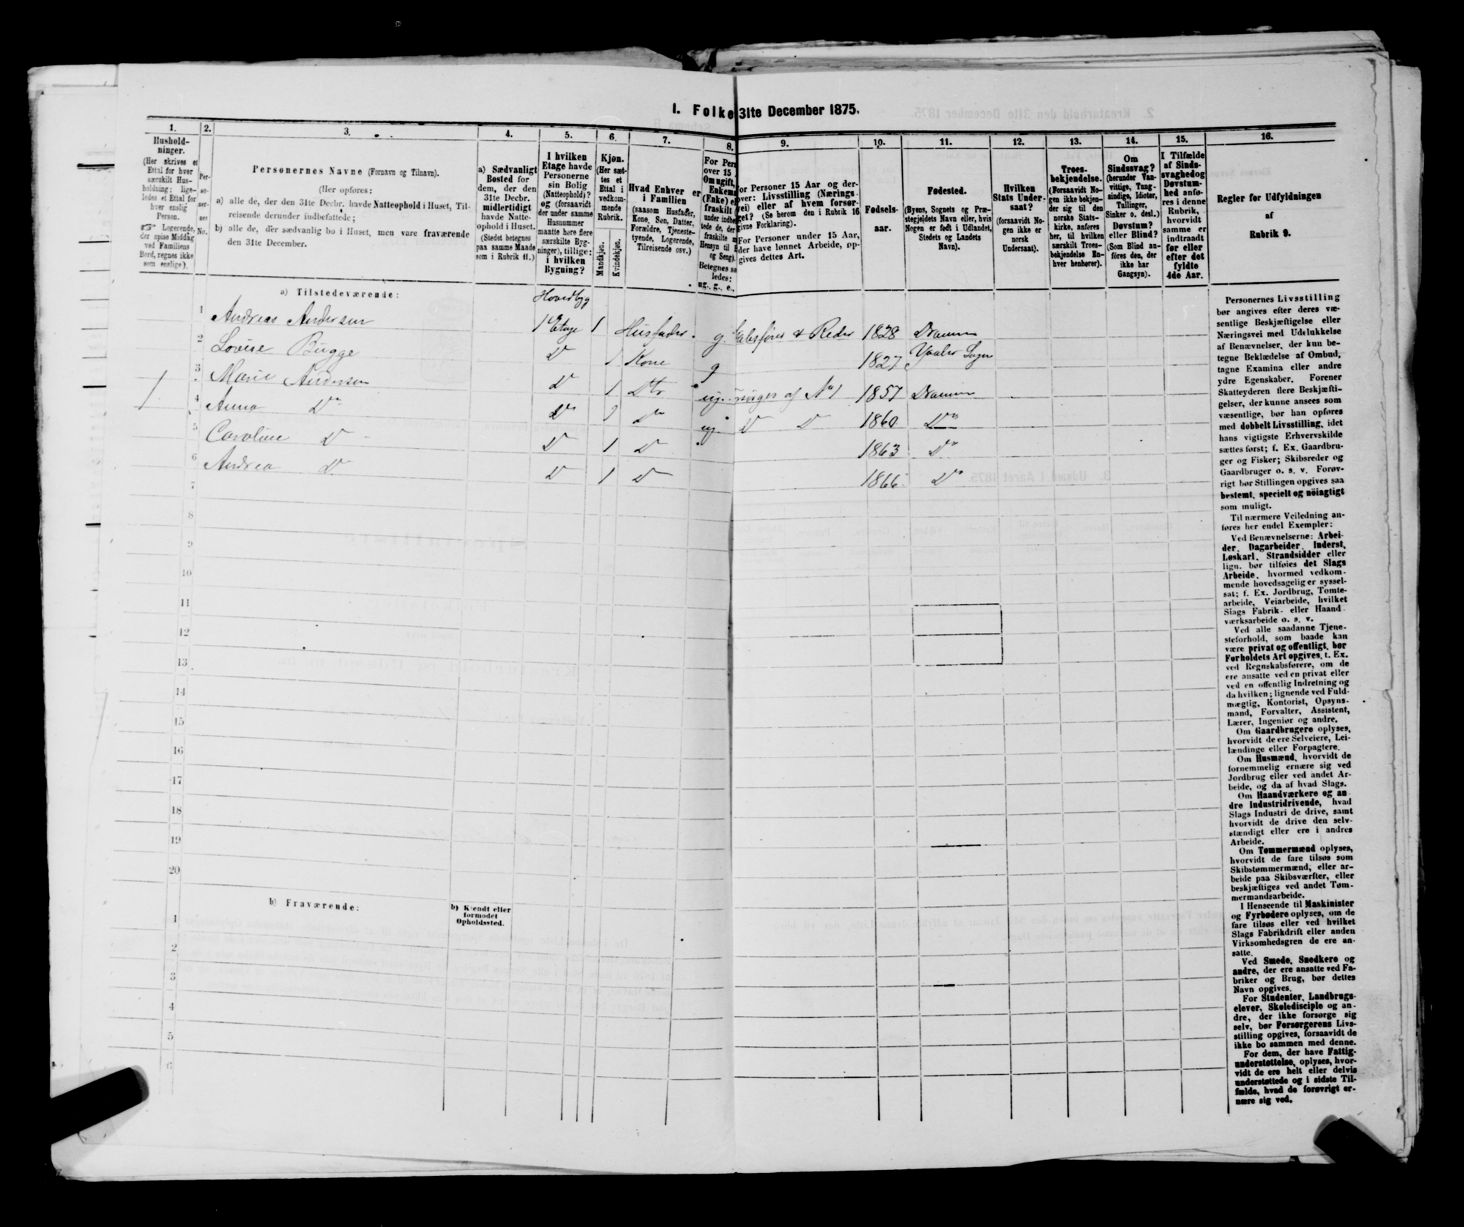 1. Folke 31te December 1875.
1. 2. 3. 4. 5. 6. 7. 8. 9. 10. 11. 12. 13. 14. 15. 16.
Hushold-
ninger.
(Her skrives et
Ettal for hver
særskilt Hus-
holdning; lige-
ledes et Ettal for
hver enslig
Person.
Logerende,
der spise Middag
ved Familiens
Bord, regnes ikke
som enslige).
Per-
so-
ner-
nes
No.
Personernes Navne (Fornavn og Tilnavn).
(Her opføres:
a) alle de, der den 31te Decbr. havde Natteophold i Huset, Til-
reisende derunder indbefattede;
b) alle de, der sædvanlig bo i Huset, men vare fraværende
den 31te December.
a) Sædvanligt
Bosted for
dem, der den
31te Decbr.
midlertidigt
havde Natte-
ophold i Huset.
(Stedet betegnes
paa samme Maade
som i Rubrik 11.)
I hvilken
Etage havde
Personerne
sin Bolig
(Natteophold)?
og (forsaavidt
der under samme
Husnummer
maatte høre flere
særskilte Byg-
ninger), tillige:
i hvilken
Bygning?
Kjøn.
(Her sæt-
tes et
Ettal i
vedkom-
mende
Rubrik.
Mandkjøn.
Kvindekjøn.
Hvad Enhver er
i Familien
(saasom Husfader,
Kone, Søn, Datter,
Forældre, Tjeneste-
tyende, Logerende,
Tilreisende osv.)
For Pers
over 15
Om ugift,
Enkem
(Enke) e
fraskilt
under indbe
tede de, der
fraskilte
Hensyn til B
og Seng).
Betegnes sa
ledes:
ug., g., e.,
For Personer 15 Aar og der-
over: Livsstilling (Nærings-
vei) eller af hvem forsør-
get? (Se herom den i Rubrik 16
givne Forklaring).
For Personer under 15 Aar,
der have lønnet Arbeide, op-
gives dettes Art.
Fødsels-
aar.
Fødested.
(Byens, Sognets og Præ-
stegjeldets Navn eller, hvis
Nogen er født i Udlandet,
Stedets og Landets
Navn).
Hvilken
Stats Under-
saat?
(forsaavidt No-
gen ikke er
norsk
Undersaat).
Troes-
bekjendelse.
(Forsaavidt No-
gen ikke bekjen-
der sig til den
norske Stats-
kirke, anføres
her, til hvilken
særskilt Troes-
bekjendelse En-
hver henhører).
Om
Sindssvag?
(herunder Van-
vittige, Tung-
sindige, Idioter,
Tullinger,
Sinker o. desl.)
Døvstum?
eller Blind?
(Som Blind an-
føres den, der
ikke har
Gangsyn).
I Tilfælde
af Sinds-
svaghed og
Døvstum-
hed anfø-
res i denne
Rubrik,
hvorvidt
samme er
indtraadt
før eller
efter det
fyldte
4de Aar.
Regler for Udfyldningen
af
Rubrik 9.
a) Tilstedeværende:
Hovedbyg
1 Andreas Andersen 1 Etage 1 Husfader g. & Reder 1828 Drammen
2 Lovise Bugge Do 1 Kone g 1827
3 Marie Andersen Do 1 Dtr ug. af No 1 1857 Drammen
4 Anna Do Do 1 Do ug Do Do 1860 Do
5 Caroline Do Do 1 Do 1863 Do
6 Andrea Do Do 1 Do 1866 Do
7
8
9
10
11
12
13
14
15
16
17
18
19
20
b) Fraværende:
b) Kjendt eller
formodet
Opholdssted.
1
2
3
4
5
6
Personernes Livsstilling
bør angives efter deres væ-
sentlige Beskjæftigelse eller
Næringsvei med Udelukkelse
af Benævnelser, der kun be-
tegne Beklædelse af Ombud,
tagne Examina eller andre
ydre Egenskaber. Forener
Skatteyderen flere Beskjæfti-
gelser, der kunne ansees som
væsentlige, bør han opføres
med dobbelt Livsstilling, idet
hans vigtigste Erhvervskilde
sættes først; f. Ex. Gaardbru-
ger og Fisker; Skibsreder og
Gaardbruger o. s. v. Forøv-
rigt bør Stillingen opgives saa
bestemt, specielt og nøiagtigt
som muligt.
Til nærmere Veiledning an-
føres her endel Exempler:
Ved Benævnelserne: Arbei-
der, Dagarbeider, Inderst,
Løskarl, Strandsidder eller
lign. bør tilføies det Slags
Arbeide, hvormed vedkom-
mende hovedsagelig er syssel-
sat; f. Ex. Jordbrug, Tomte-
arbeide, Veiarbeide, hvilket
Slags Fabrik- eller Haand-
værksarbeide o. s. v.
Ved alle saadanne Tjene-
steforhold, som baade kan
være privat og offentligt, bør
Forholdets Art opgives, f. Ex.
ved Regnskabsførere, om de
ere ansatte ved en privat eller
ved en offentlig Indretning og
da hvilken; lignende ved Fuld-
mægtig, Kontorist, Opsyns-
mand, Forvalter, Assistent,
Lærer, Ingeniør og andre.
Om Gaardbrugere oplyses,
hvorvidt de ere Selveiere, Lei-
lændinge eller Forpagtere.
Om Husmænd, hvorvidt de
fornemmelig ernære sig ved
Jordbrug eller ved andet Ar-
beide, og da af hvad Slags.
Om Haandværkere og an-
dre Industridrivende, hvad
Slags Industri de drive, samt
hvorvidt de drive den selv-
stændigt eller ere i andres
Arbeide.
Om Tømmermænd oplyses,
hvorvidt de fare tilsøs som
Skibstømmermænd, eller ar-
beide paa Skibsværfter, eller
beskjæftiges ved andet Tøm-
mermandsarbeide.
I Henseende til Maskinister
og Fyrbødere oplyses, om de
fare tilsøs eller ved hvilket
Slags Fabrikdrift eller anden
Virksomhedsgren de ere an-
satte.
Ved Smede, Snedkere og
andre, der ere ansatte ved Fa-
briker og Brug, bør dettes
Navn opgives.
For Studenter, Landbrugs-
elever, Skoledisciple og an-
dre, der ikke forsørge sig
selv, bør Forsørgerens Livs-
stilling opgives, forsaavidt de
ikke bo sammen med denne.
For dem, der have Fattig-
understøttelse, oplyses, hvor-
vidt de ere helt eller delvis
understøttede og i sidste Til-
fælde, hvad de forøvrigt er-
nære sig ved.